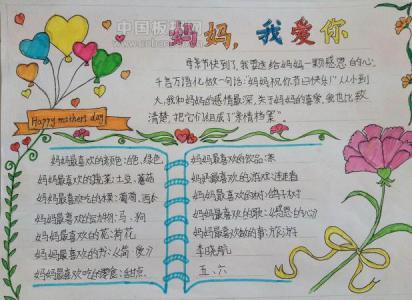 中国板报网
妈妈，我爱你
Happy mothers day
母亲节快到了，我要送给妈妈一颗感恩的心，
千言万语化做一句话："妈妈祝你节日快乐！"从小到
大，我和妈妈的感情最深，关于妈妈的喜爱，我也比较
清楚，把它们组成了"亲情档案"。
妈妈最喜欢的颜色：白色，绿色
妈妈最喜欢的蔬菜：土豆，蘑菇
妈妈最喜欢吃的水果：葡萄，西
妈妈最喜欢的动物：马，狗
妈妈最喜欢的花：荷花
妈妈最喜欢的书：
妈妈最喜欢吃的零食：甜点
妈妈最喜欢的饮品：茶
妈妈最喜欢的
妈妈最喜欢的树：
妈妈最喜欢的歌：《感恩的心》
妈妈最喜欢做的事：
李晓航
五、六